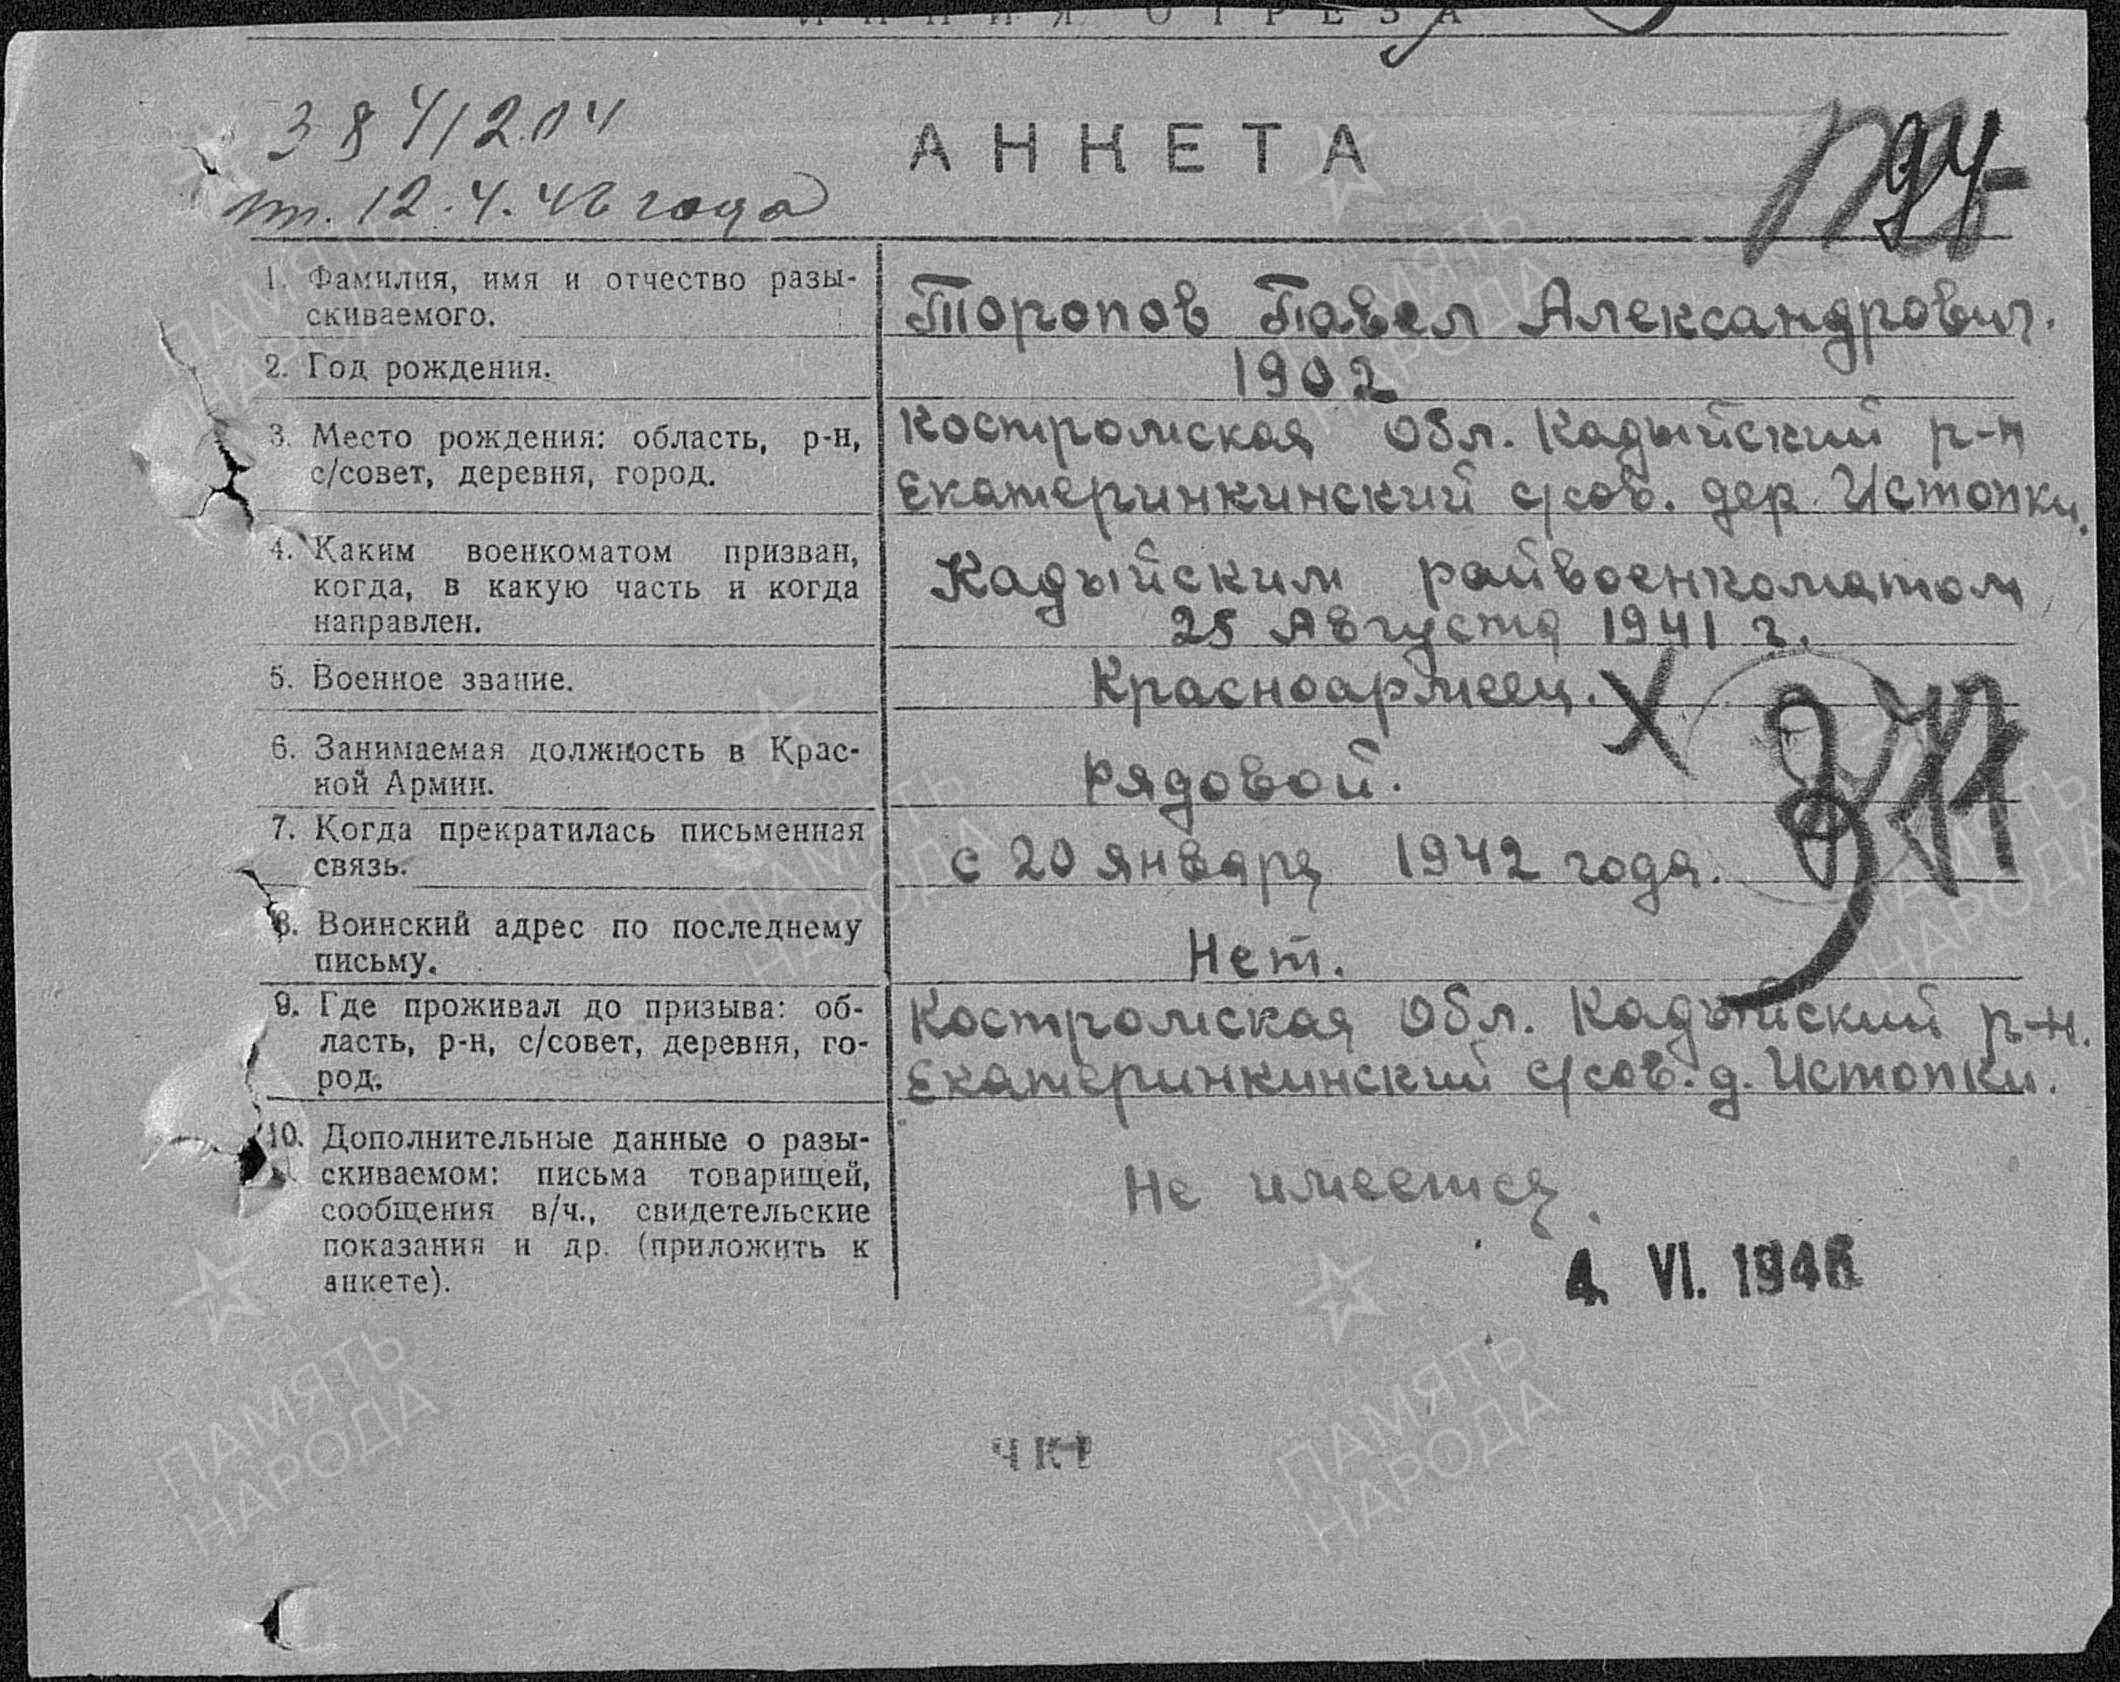 ЛИНИЯ ОТРЕЗА
АНКЕТА
от. 12.4.46 года
1. Фамилия, имя и отчество разы-
скиваемого.
Торопов Павел Александрович.
2. Год рождения.
1902
3. Место рождения: область, р-н,
с/совет, деревня, город.
Костромская Обл. Кадыйский р-н
Екатеринкинский с/сов. дер. Истопки.
4. Каким военкоматом призван,
когда, в какую часть и когда
направлен.
Кадыйским райвоенкоматом
25 Августа 1941 г.
5. Военное звание.
Красноармеец.
6. Занимаемая должность в Крас-
ной Армии.
Рядовой.
7. Когда прекратилась письменная
связь.
с 20 января 1942 года.
8. Воинский адрес по последнему
письму.
Нет.
9. Где проживал до призыва: об-
ласть, р-н, с/совет, деревня, го-
род.
Костромская Обл. Кадыйский р-н.
Екатеринкинский с/сов. д. Истопки.
10. Дополнительные данные о разы-
скиваемом: письма товарищей,
сообщения в/ч., свидетельские
показания и др. (приложить к
анкете).
Не имеется.
4. VI. 1946
ПАМЯТЬ
НАРОДА